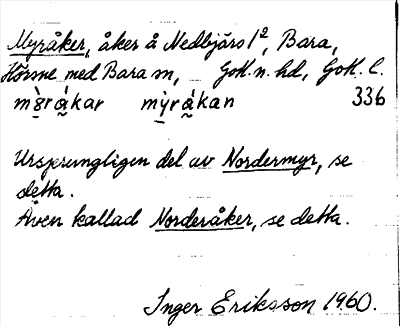 Myråker, åker å Nedbjärs 1², Bara,
Hörsne med Bara sn, Gotl. n. hd, Gotl. l.
mỳråkar mỳråkan 336
Ursprungligen del av Nordermyr, se
detta.
Även kallad Norderåker, se detta.
Inger Eriksson 1960.